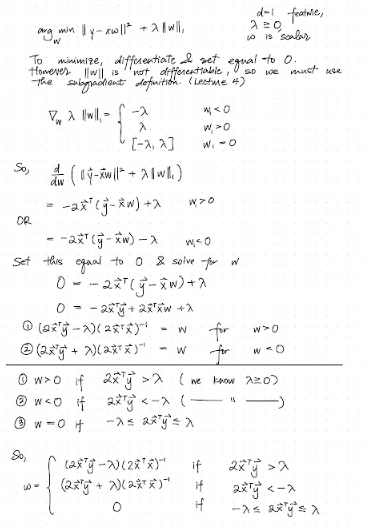 arg min ‖y - xw‖² + λ‖w‖₁
w
d=1 feature,
λ ≥ 0
w is scalar
To minimize, differentiate & set equal to 0.
However ‖w‖ is not differentiable, so we must use
the subgradient definition. (Lecture 4)
∇w λ‖w‖₁ = { -λ w₁ < 0
λ w₁ > 0
[-λ, λ] w₁ = 0
So, d/dw ( ‖y⃗ - x⃗w‖² + λ‖w‖₁ )
= -2x⃗ᵀ(y⃗ - x⃗w) + λ w₁ > 0
OR
= -2x⃗ᵀ(y⃗ - x⃗w) - λ w₁ < 0
Set this equal to 0 & solve for w
0 = -2x⃗ᵀ(y⃗ - x⃗w) + λ
0 = -2x⃗ᵀy⃗ + 2x⃗ᵀx⃗w + λ
① (2x⃗ᵀy⃗ - λ)(2x⃗ᵀx⃗)⁻¹ = w for w > 0
② (2x⃗ᵀy⃗ + λ)(2x⃗ᵀx⃗)⁻¹ = w for w < 0
① w > 0 if 2x⃗ᵀy⃗ > λ (we know λ ≥ 0)
② w < 0 if 2x⃗ᵀy⃗ < -λ (—— " ——)
③ w = 0 if -λ ≤ 2x⃗ᵀy⃗ ≤ λ
So,
w = { (2x⃗ᵀy⃗ - λ)(2x⃗ᵀx⃗)⁻¹ if 2x⃗ᵀy⃗ > λ
(2x⃗ᵀy⃗ + λ)(2x⃗ᵀx⃗)⁻¹ if 2x⃗ᵀy⃗ < -λ
0 if -λ ≤ 2x⃗ᵀy⃗ ≤ λ